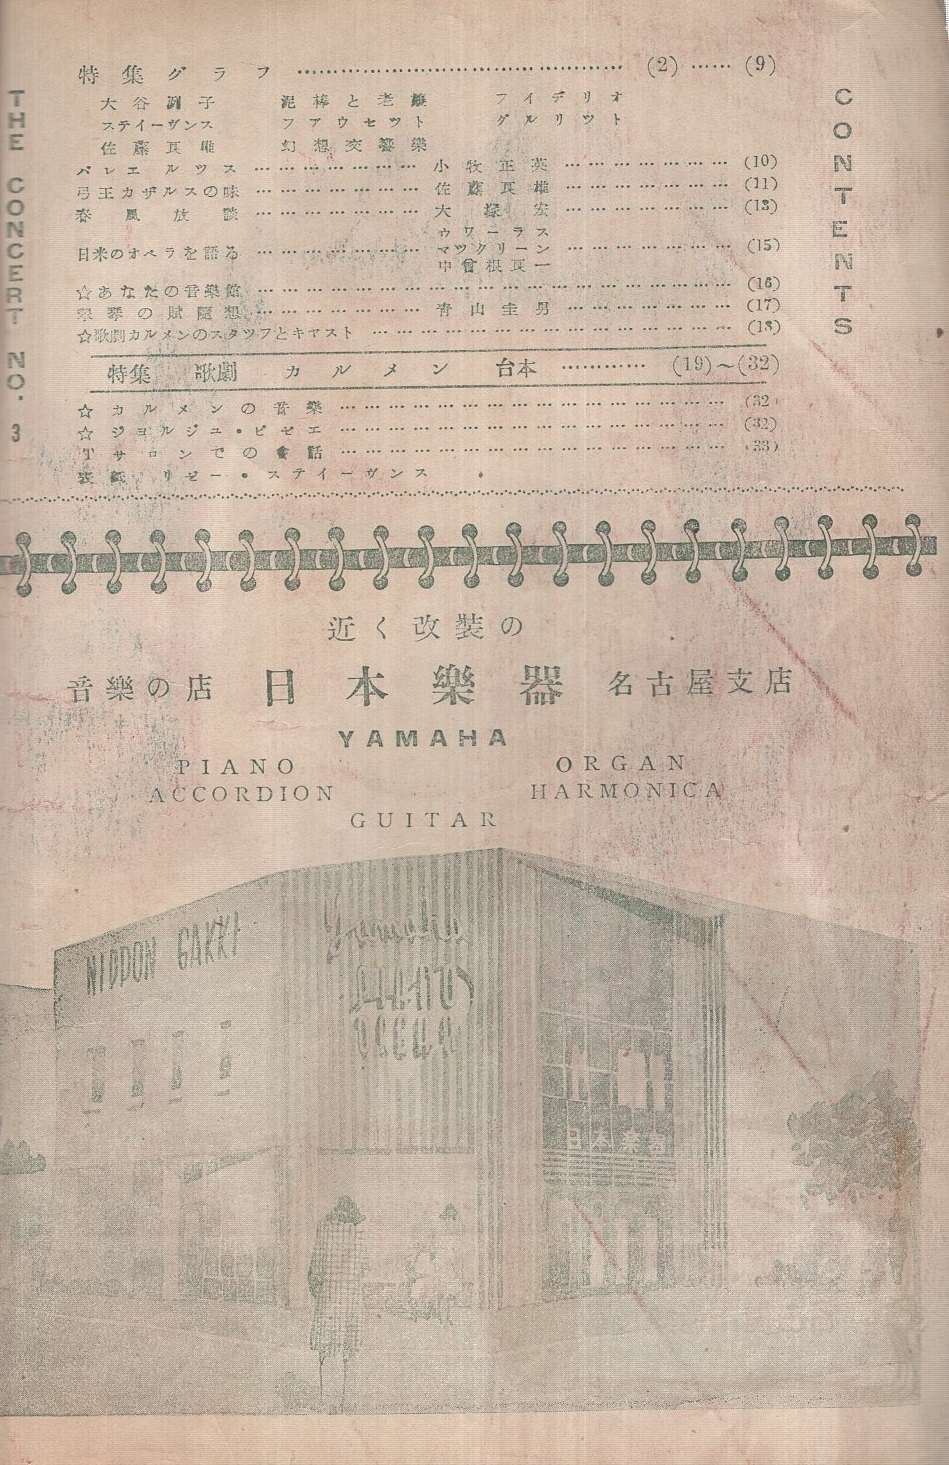 THE CONCERT NO. 3
CONTENTS
特集グラフ ………… (2) …… (9)
大谷冽子 泥棒と老嬢 フイデリオ
ステイーヴンス フアウセツト グルリツト
佐藤良雄 幻想交響樂
バレエ ルツス ………… 小牧正英 ………… (10)
弓王カザルスの味 ………… 佐藤良雄 ………… (11)
春風放談 ………… 大塚宏 ………… (13)
日米のオペラを語る ………… ウワーラス マツクリーン 中曾根良一 ………… (15)
☆あなたの音樂館 ………… (16)
の賦隨想 ………… 青山圭男 ………… (17)
☆歌劇カルメンのスタツフとキヤスト ………… (18)
特集 歌劇 カルメン 台本 ………… (19)~(32)
☆カルメンの音樂 ………… (32)
☆ジヨルジユ・ビゼエ ………… (32)
サロンでの會話 ………… (33)
表紙 リゼー・ステイーヴンス
近く改裝の
音樂の店 日本樂器 名古屋支店
YAMAHA
PIANO ORGAN
ACCORDION HARMONICA
GUITAR
NIPPON GAKKI
Yamaha
PIANO
ORGAN
日本楽器